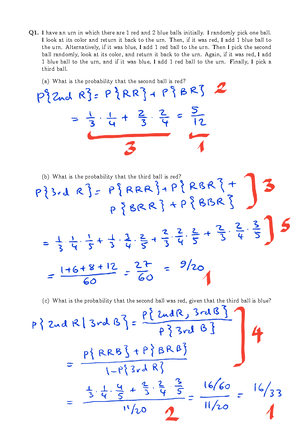 Q1. I have an urn in which there are 1 red and 2 blue balls initially. I randomly pick one ball.
I look at its color and return it back to the urn. Then, if it was red, I add 1 blue ball to
the urn. Alternatively, if it was blue, I add 1 red ball to the urn. Then I pick the second
ball randomly, look at its color, and return it back to the urn. Again, if it was red, I add
1 blue ball to the urn, and if it was blue, I add 1 red ball to the urn. Finally, I pick a
third ball.
(a) What is the probability that the second ball is red?
P{2nd R} = P{RR} + P{BR} 2
= 1/3 · 1/4 + 2/3 · 2/4 = 5/12
3 1
(b) What is the probability that the third ball is red?
P{3rd R} = P{RRR} + P{RBR} +
P{BRR} + P{BBR} 3
= 1/3 · 1/4 · 1/5 + 1/3 · 3/4 · 2/5 + 2/3 · 2/4 · 2/5 + 2/3 · 2/4 · 3/5 5
= 1+6+8+12/60 = 27/60 = 9/20
1
(c) What is the probability that the second ball was red, given that the third ball is blue?
P{2nd R | 3rd B} = P{2nd R, 3rd B}/P{3rd B}
= P{RRB} + P{BRB}/1-P{3rd R} 4
= 1/3 · 1/4 · 4/5 + 2/3 · 2/4 · 3/5 / 11/20 = 16/60 / 11/20 = 16/33
2 1